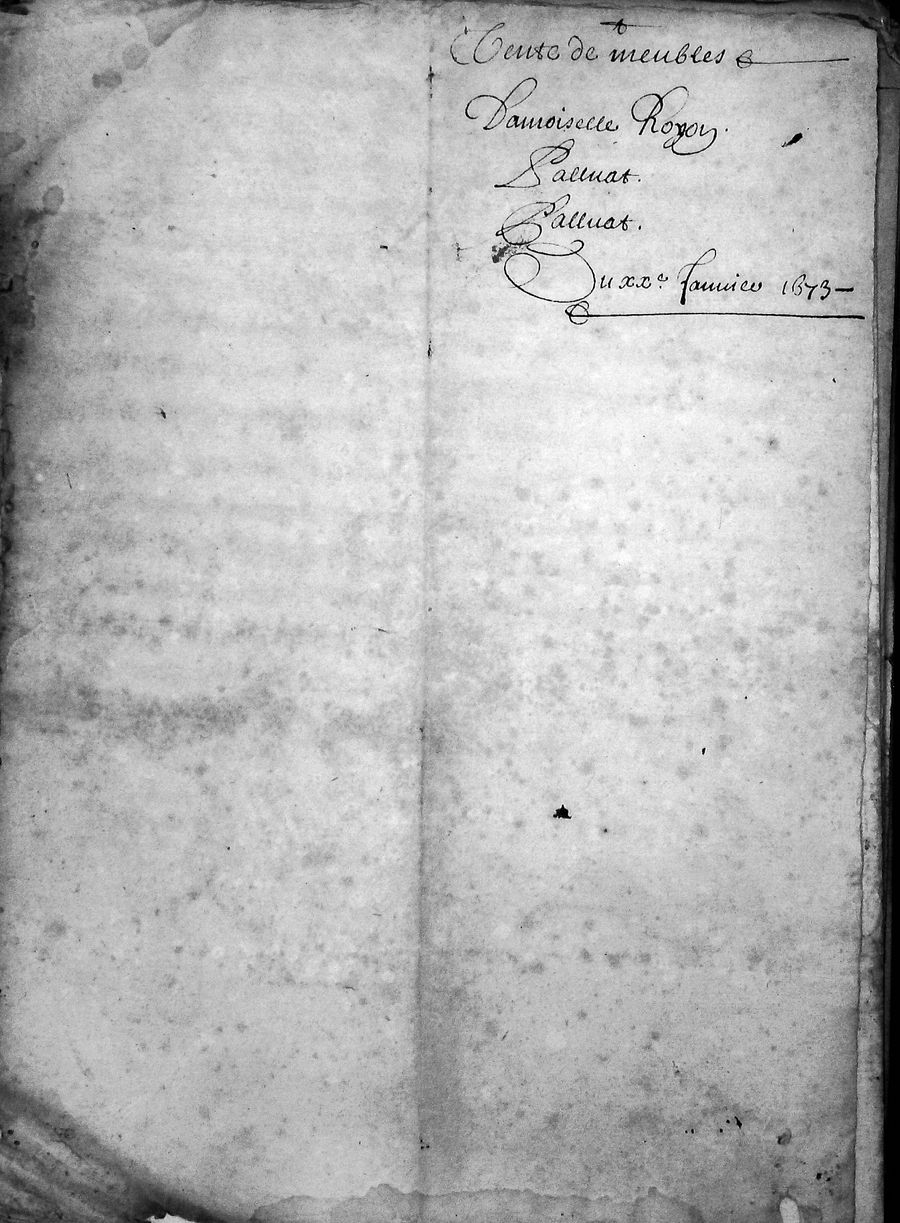 Vente de meubles
Damoiselle Royon.
Palluat.
Palluat.
Du xxe Januier 1673 –